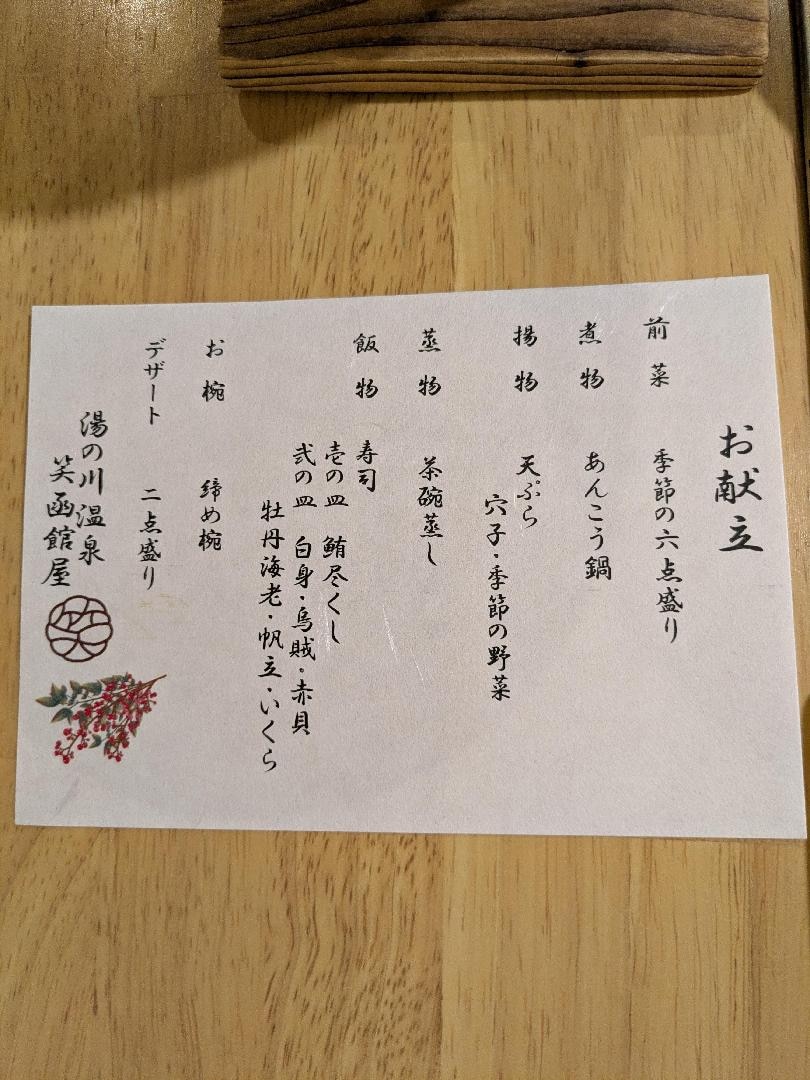 お献立
前菜 季節の六点盛り
煮物 あんこう鍋
揚物 天ぷら
穴子・季節の野菜
蒸物 茶碗蒸し
飯物 寿司
壱の皿 鮪尽くし
弐の皿 白身・烏賊・赤貝
牡丹海老・帆立・いくら
お椀 締め椀
デザート 二点盛り
湯の川温泉
笑函館屋
笑